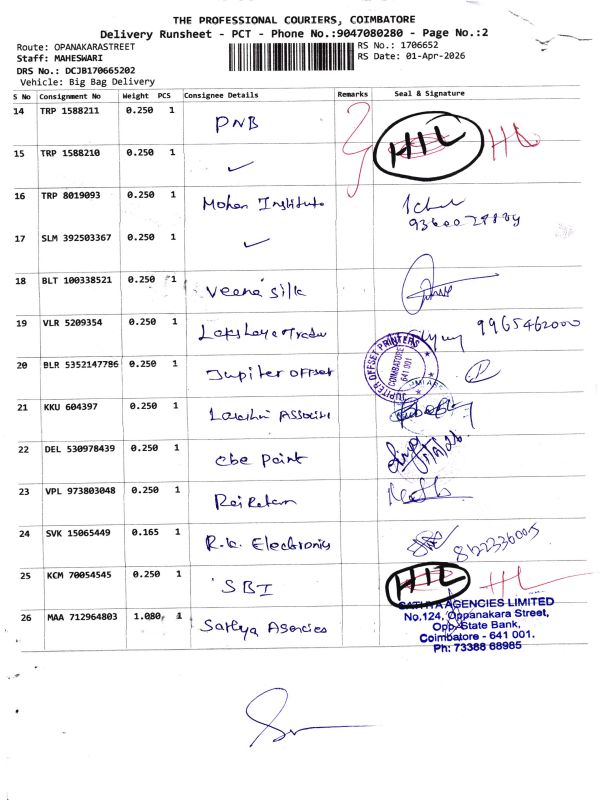 THE PROFESSIONAL COURIERS, COIMBATORE
Delivery Runsheet - PCT - Phone No.:9047080280 - Page No.:2
Route: OPANAKARASTREET
RS No.: 1706652
Staff: MAHESWARI
RS Date: 01-Apr-2026
DRS No.: DCJB170665202
Vehicle: Big Bag Delivery
S No Consignment No Weight PCS Consignee Details Remarks Seal & Signature
14 TRP 1588211 0.250 1 PNB HIL
15 TRP 1588210 0.250 1 ✓
16 TRP 8019093 0.250 1 Mohan Institute
17 SLM 392503367 0.250 1 ✓
18 BLT 100338521 0.250 1 Veena silk
19 VLR 5209354 0.250 1 9965462000
20 BLR 5352147786 0.250 1 Jupiter offset
JUPITER OFFSET PRINTERS
COIMBATORE
641 001
21 KKU 604397 0.250 1
22 DEL 530978439 0.250 1 cbe Paint
23 VPL 973803048 0.250 1
24 SVK 15065449 0.165 1 R.k. Electronics
25 KCM 70054545 0.250 1 SBI HIL
26 MAA 712964803 1.080 1 Sathya Agencies
SATHYA AGENCIES LIMITED
No.124, Oppanakara Street,
Opp. State Bank,
Coimbatore - 641 001.
Ph: 73388 68985